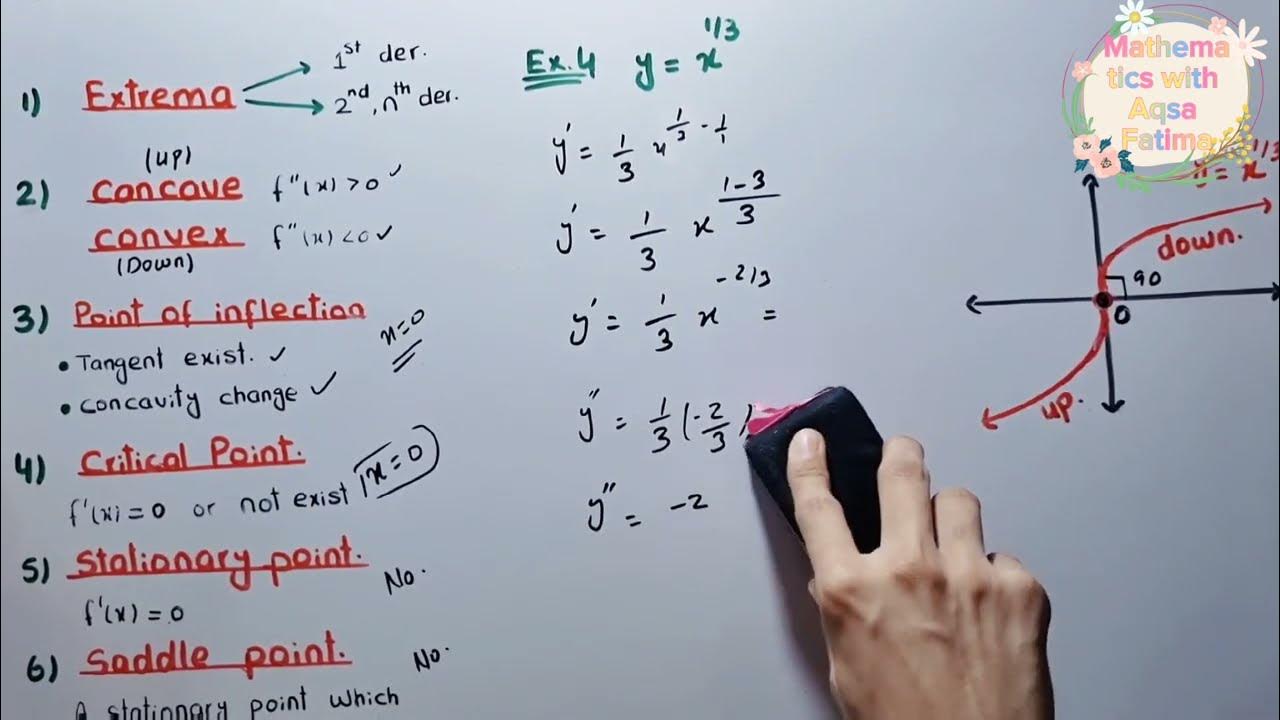 1) Extrema
1st der.
2nd, nth der.
(up)
2) Concave f''(x) > 0 ✓
Convex f''(x) < 0 ✓
(Down)
3) Point of inflection
x=0
• Tangent exist. ✓
• Concavity change ✓
4) Critical Point.
f'(x) = 0 or not exist x=0
5) Stationary point.
No.
f'(x) = 0
6) Saddle point.
No.
A stationary point which
Ex.4 y = x^1/3
y' = 1/3 x^(1/3 - 1/1)
y' = 1/3 x^(1-3/3)
y' = 1/3 x^-2/3 =
y'' = 1/3 (-2/3)
y'' = -2
Mathema
tics with
Aqsa
Fatima
y = x^1/3
down.
90
0
up.